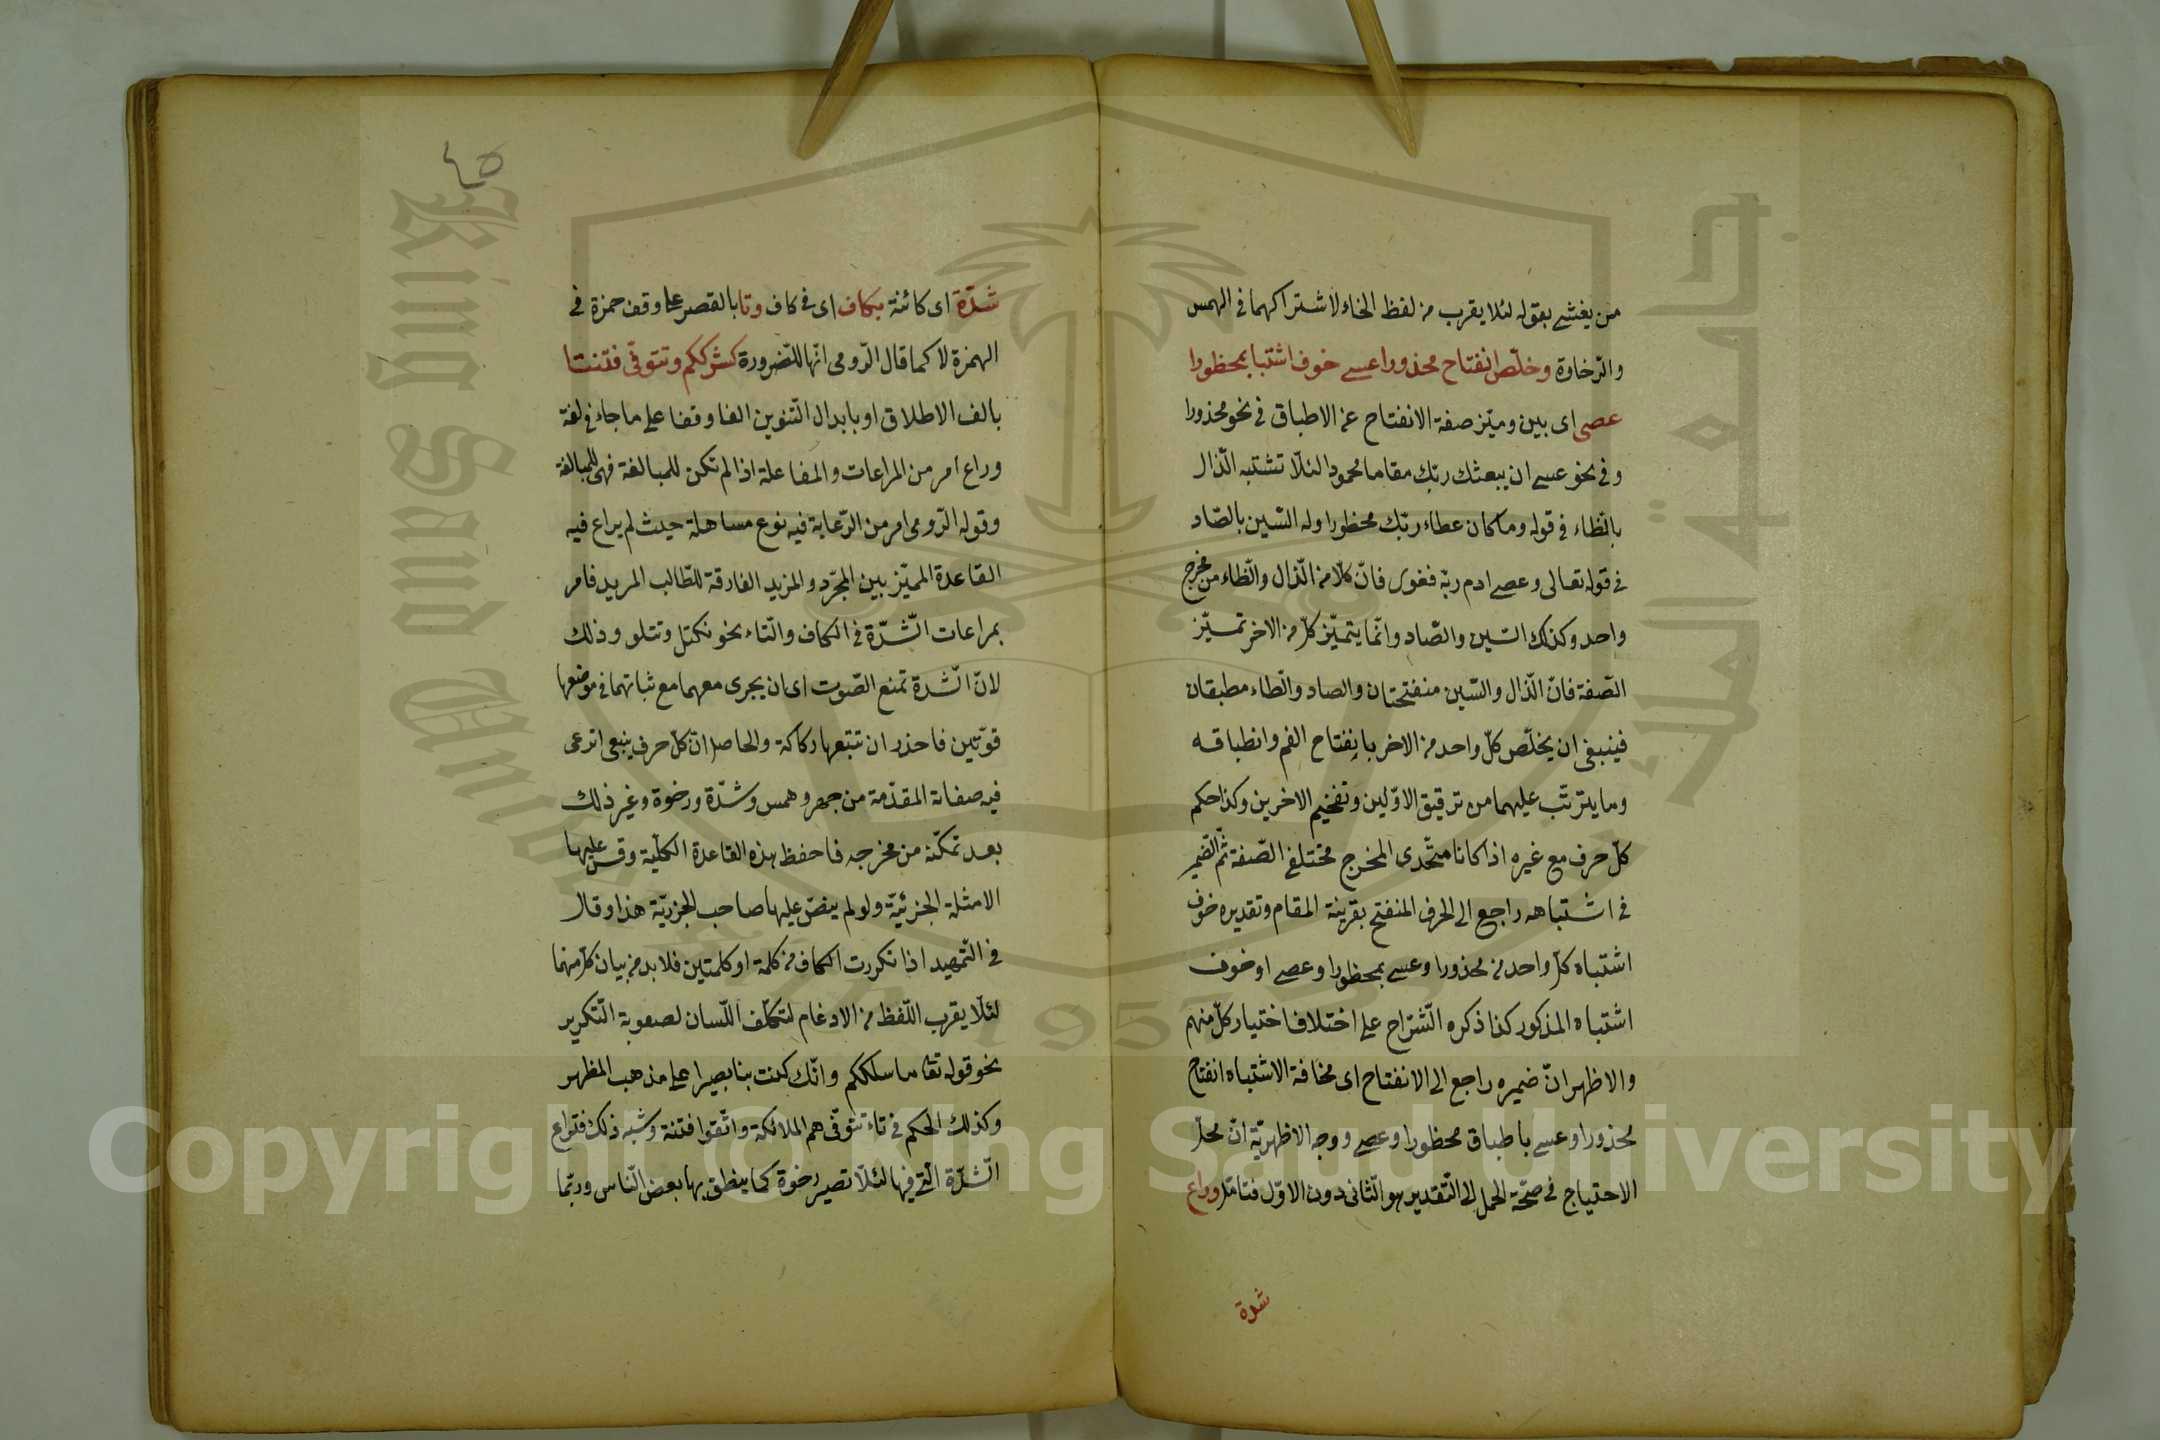 من يغشى بقوله لئلا يقرب من لفظ الخاء لاشتراكهما في الهمس
والرّخاوة وخلّص انفتاح محذورا عسى خوف اشتباه بمحظورا
عصى اى بين وميّز صفة الانفتاح عن الاطباق في نحو محذورا
وفي نحو عسى ان يبعثك ربّك مقاما محمودا لئلّا تشتبه الذّال
بالظّاء في قوله وما كان عطاء ربّك محظورا وله السّين بالصّاد
في قوله تعالى وعصى ادم ربّه فغوى فانّ كلّا من الذّال والظّاء من مخرج
واحد وكذلك السّين والصّاد وانّما يتميّز كلّ من الاخر تميّز
الصّفة فانّ الذّال والسّين منفتحتان والصاد والظاء مطبقتان
فينبغى ان يخلّص كلّ واحد من الاخر بانفتاح الفم وانطباقه
وما يترتّب عليهما من ترقيق الاوّلين وتفخيم الاخرين وكذا حكم
كلّ حرف مع غيره اذا كانا متّحدى المخرج مختلفى الصّفة ثمّ الضّمير
في اشتباهه راجع الى الحرف المنفتح بقرينة المقام وتقديره خوف
اشتباه كلّ واحد من محذورا وعسى بمحظورا وعصى او خوف
اشتباه المذكور كذا ذكره الشّرّاح على اختلاف اختيار كلّ منهم
والاظهر انّ ضميره راجع الى الانفتاح اى مخافة الاشتباه انفتاح
محذورا وعسى باطباق محظورا وعصى ووجه الاظهريّة انّ محلّ
الاحتياج في صحّة الحمل الى التّقدير هو الثّانى دون الاوّل فتامّل وراع
شدة
٤٥
شدّة اى كائنة بكاف اى في كاف وتا بالقصر على وقف حمزة في
الهمزة لا كما قال الرّومى انّها للضّرورة كشرككم وتتوفّى فتنتا
بالف الاطلاق او بابدال التّنوين الفا وقفا على ما جاء في لغة
وراع امر من المراعات والمفاعلة اذا لم تكن للمبالغة فهى للمبالغة
وقوله الرّومى امر من الرّعاية فيه نوع مساهلة حيث لم يراع فيه
القاعدة المميّز بين المجرّد والمزيد الفارقة للطّالب المريد فامر
بمراعات الشّدّة في الكاف والتّاء نحو نكتل وتتلو وذلك
لانّ الشّدة تمنع الصّوت اى ان يجرى معهما مع ثباتهما في موضعها
قوّتين فاحذر ان تتبعها ركاكة والحاصل انّ كلّ حرف ينبغى ان يرعى
فيه صفاته المقدّمة من جهر وهمس وشدّة ورخوة وغير ذلك
بعد تمكّنه من مخرجه فاحفظ بهذه القاعدة الكلّية وقس عليها
الامثلة الجزئيّة ولو لم ينصّ عليها صاحب الجزريّة هذا وقال
في التّمهيد اذا تكررت الكاف من كلمة او كلمتين فلا بد من بيان كلّ منهما
لئلّا يقرب اللّفظ من الادغام لتكلّف اللّسان لصعوبة التّكرير
نحو قوله تعا ما سلككم وانّك كنت بنا بصيرا على مذهب المظهر
وكذلك الحكم في تاء تتوفّى هم الملائكة واتّقوا فتنة وشبه ذلك فتراع
الشّدّة الّتى فيها لئلّا تصير رخوة كما ينطق بها بعض النّاس وربّما
King Saud University
جامعة الملك
195
Copyright © King Saud University